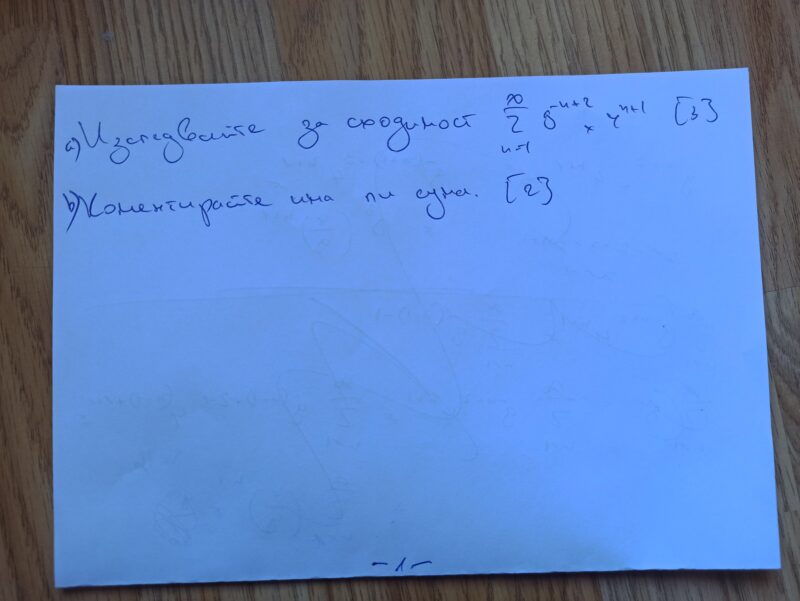 a) Изследвайте за сходимост ∞ Σ n=1 9⁻ⁿ⁺² × 4ⁿ⁺¹ [3]
b) Коментирайте има ли сума. [2]
-1-